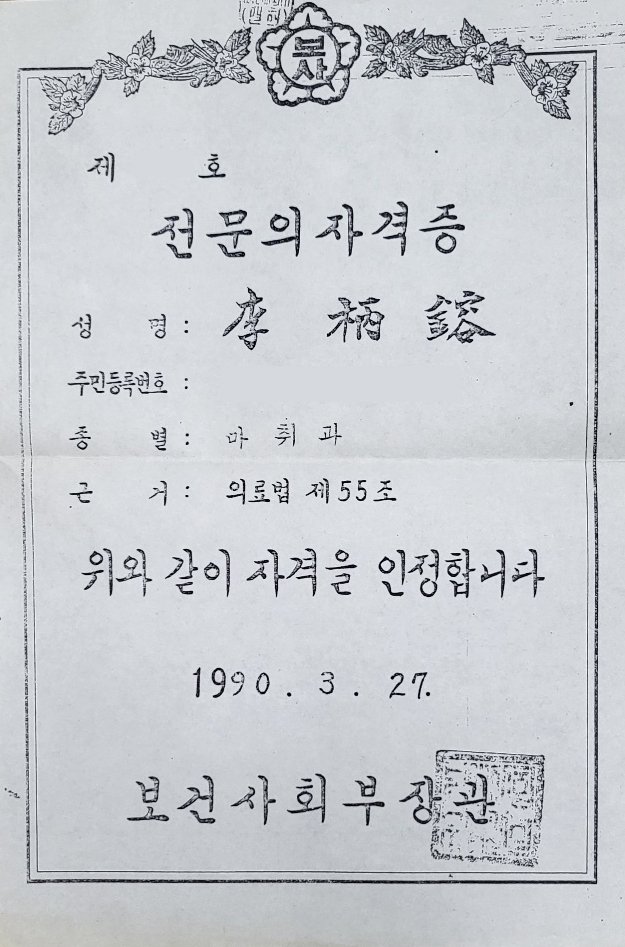 보사
제 호
전문의자격증
성 명 : 李 柄 鎔
주민등록번호 :
종 별 : 마 취 과
근 거 : 의료법 제55조
위와 같이 자격을 인정합니다
1990. 3. 27.
보건사회부장관